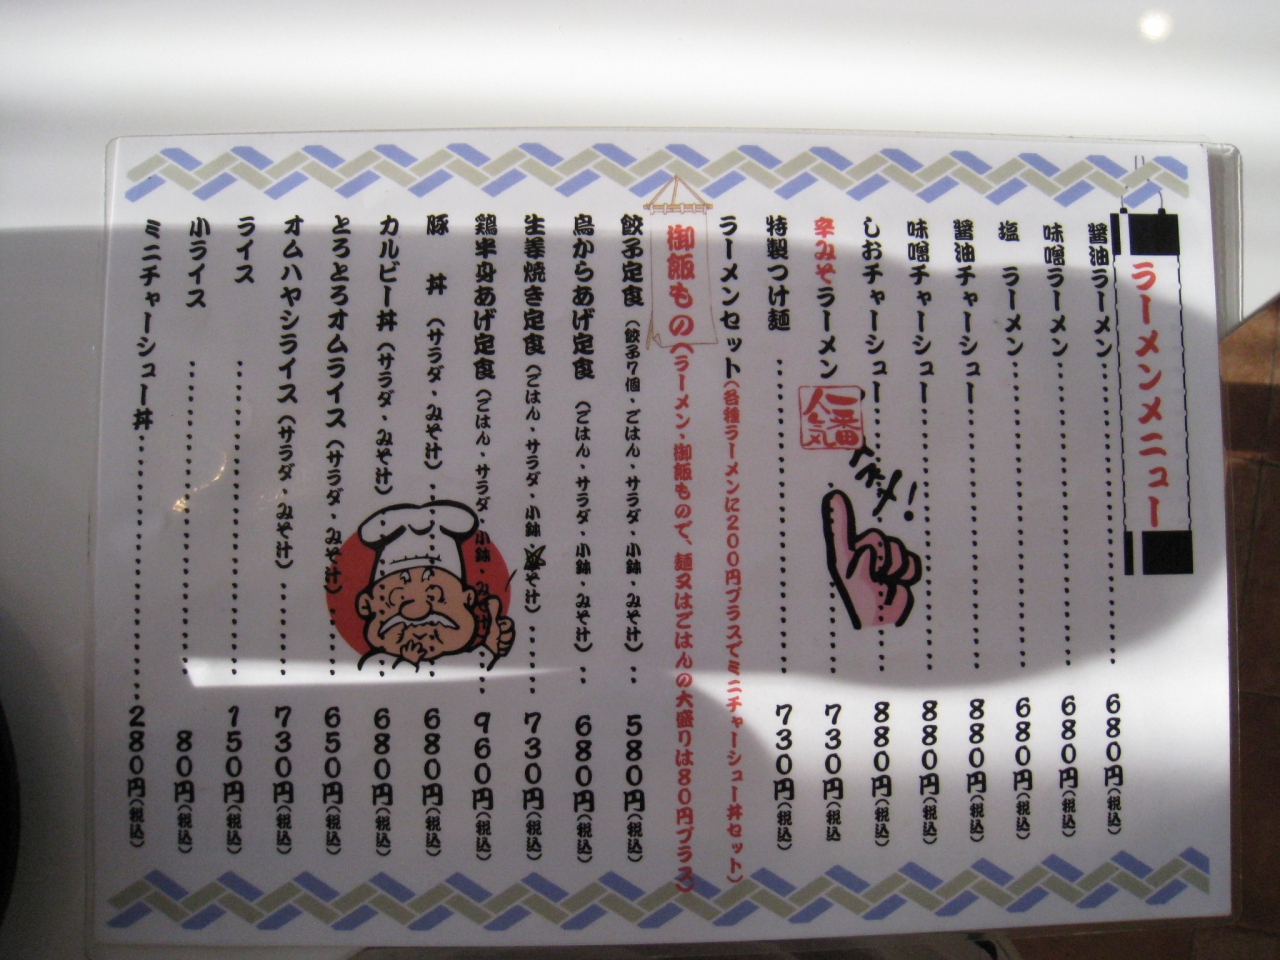 ラーメンメニュー
醤油ラーメン 680円(税込)
味噌ラーメン 680円(税込)
塩 ラーメン 680円(税込)
醤油チャーシュー 880円(税込)
味噌チャーシュー 880円(税込)
しおチャーシュー 880円(税込)
イチオシ!
辛みそラーメン 730円(税込)
一番人気
特製つけ麺 730円(税込)
ラーメンセット(各種ラーメンに200円プラスでミニチャーシュー丼セット)
御飯もの(ラーメン・御飯もので、麺又はごはんの大盛りは80円プラス)
餃子定食(餃子7個・ごはん・サラダ・小鉢・みそ汁) 580円(税込)
鳥からあげ定食(ごはん・サラダ・小鉢・みそ汁) 680円(税込)
生姜焼き定食(ごはん・サラダ・小鉢・みそ汁) 730円(税込)
鶏半身あげ定食(ごはん・サラダ・小鉢・みそ汁) 960円(税込)
豚 丼(サラダ・みそ汁) 680円(税込)
カルビー丼(サラダ・みそ汁) 680円(税込)
とろとろオムライス(サラダ・みそ汁) 650円(税込)
オムハヤシライス(サラダ・みそ汁) 730円(税込)
ライス 150円(税込)
小ライス 80円(税込)
ミニチャーシュー丼 280円(税込)